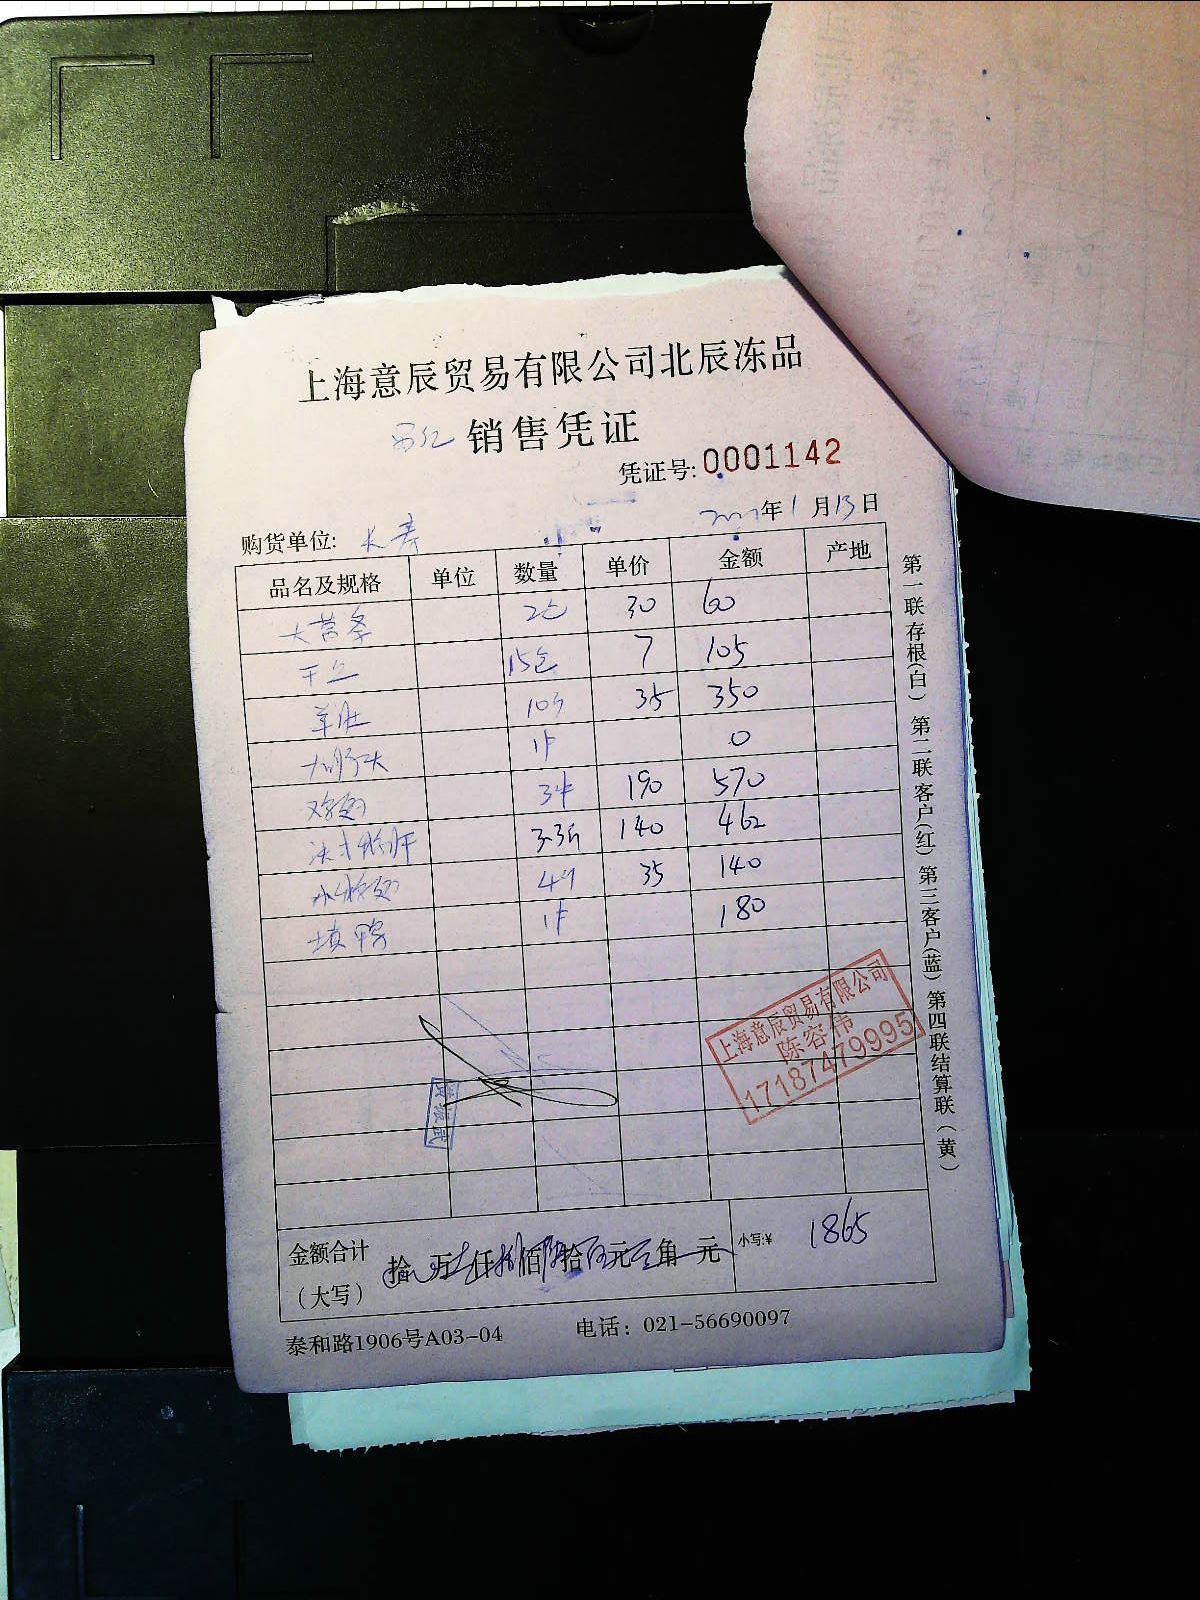 上海意辰贸易有限公司北辰冻品
销售凭证
凭证号: 0001142
年 1 月 13 日
购货单位: 长寿
品名及规格 单位 数量 单价 金额 产地
2包 30 60
干丝 15包 7 105
羊肚 10 35 350
大肠头 1件 0
鸡翅 3件 190 570
3.3斤 140 462
4 35 140
填鸭 1件 180
上海意辰贸易有限公司
陈容伟
17187479995
金额合计
(大写)
拾 万 仟 佰 拾 元 角 元
小写:¥ 1865
泰和路1906号A03-04 电话: 021-56690097
第一联存根(白) 第二联客户(红) 第三客户(蓝) 第四联结算联(黄)